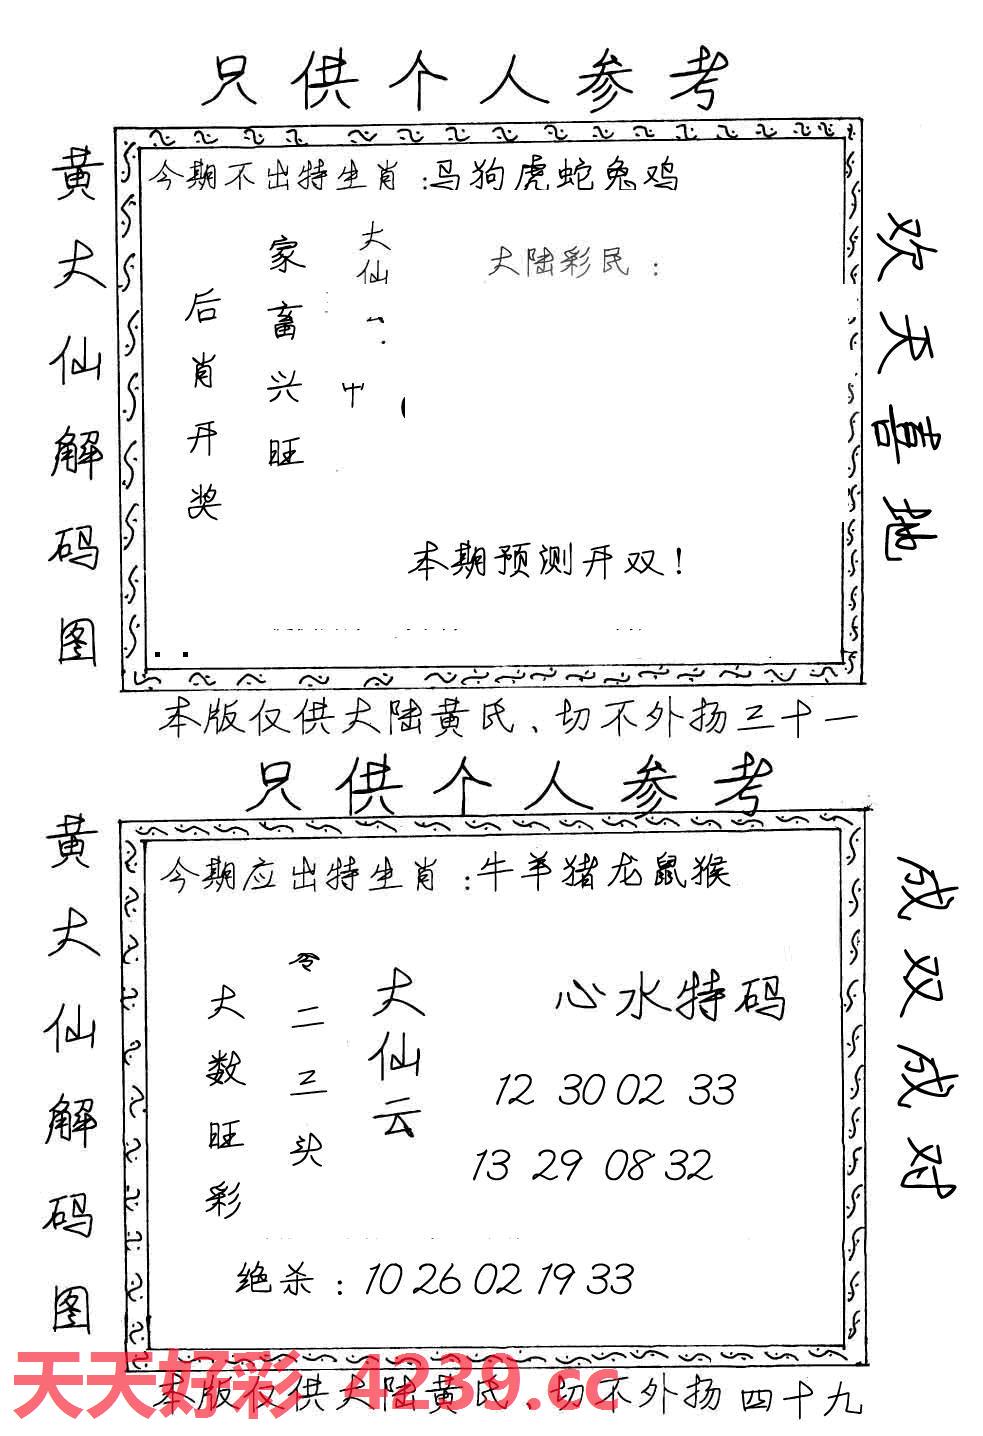 只供个人参考
黄大仙解码图
今期不出特生肖:马狗虎蛇兔鸡
大仙
家畜兴旺
后肖开奖
大陆彩民:
本期预测开双!
欢天喜地
本版仅供大陆黄氏、切不外扬三十一
只供个人参考
黄大仙解码图
今期应出特生肖:牛羊猪龙鼠猴
大仙云
零二三头
大数旺彩
心水特码
12 30 02 33
13 29 08 32
绝杀:10 26 02 19 33
成双成对
天天好彩 4239.cc
本版仅供大陆黄氏、切不外扬四十九